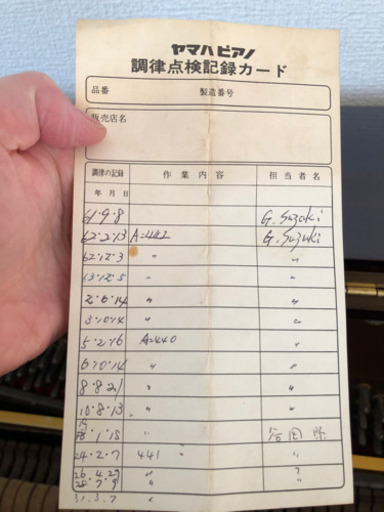 ヤマハピアノ
調律点検記録カード
品番 製造番号
販売店名
調律の記録 作業内容 担当者名
年月日
61.9.8 G. Suzuki
62.2.13 A=442 G. Suzuki
62.12.3 〃 〃
63.12.5 〃 〃
2.6.14 〃 〃
3.10.14 〃 〃
5.2.16 A=440 〃
6.10.14 〃 〃
8.8.21 〃 〃
10.8.13 〃 〃
.1.18 〃
24.2.7 441 〃 〃
26.4.29 〃 〃
28.7.9 〃 〃
31.3.7 〃